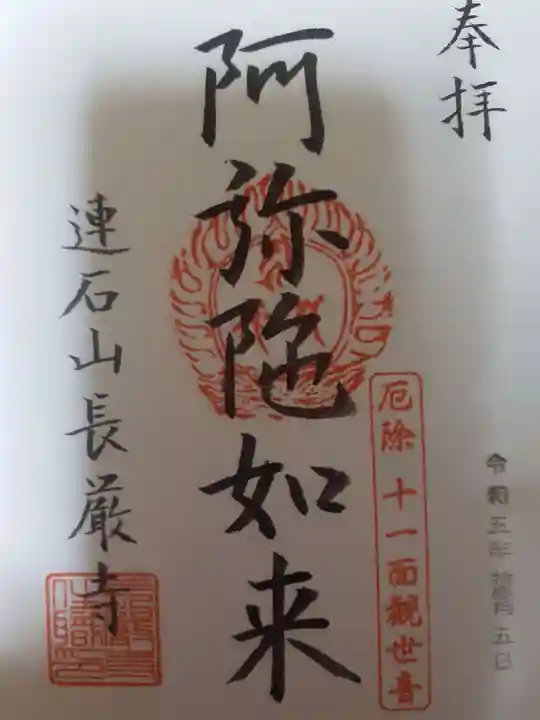 奉拝
令和五年拾壱月五日
厄除 十一面観世音
阿弥陀如来
連石山長厳寺